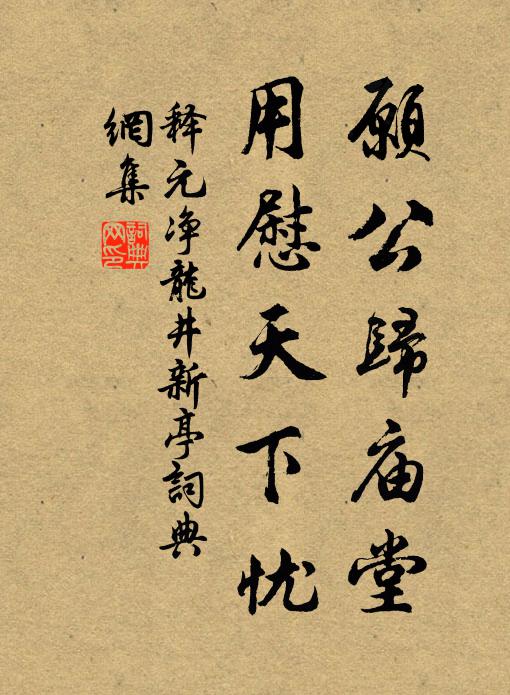 願公歸庙堂
用慰天下忧
释元净龍井新亭詞典
網集
詞典
网印